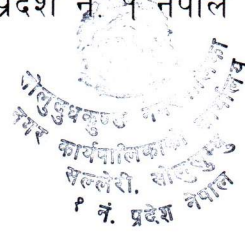 प्रदेश नं. १ नेपाल
सोलुदुधकुण्ड नगरपालिका
नगर कार्यपालिकाको कार्यालय
सल्लेरी, सोलुखुम्बु
१ नं. प्रदेश नेपाल